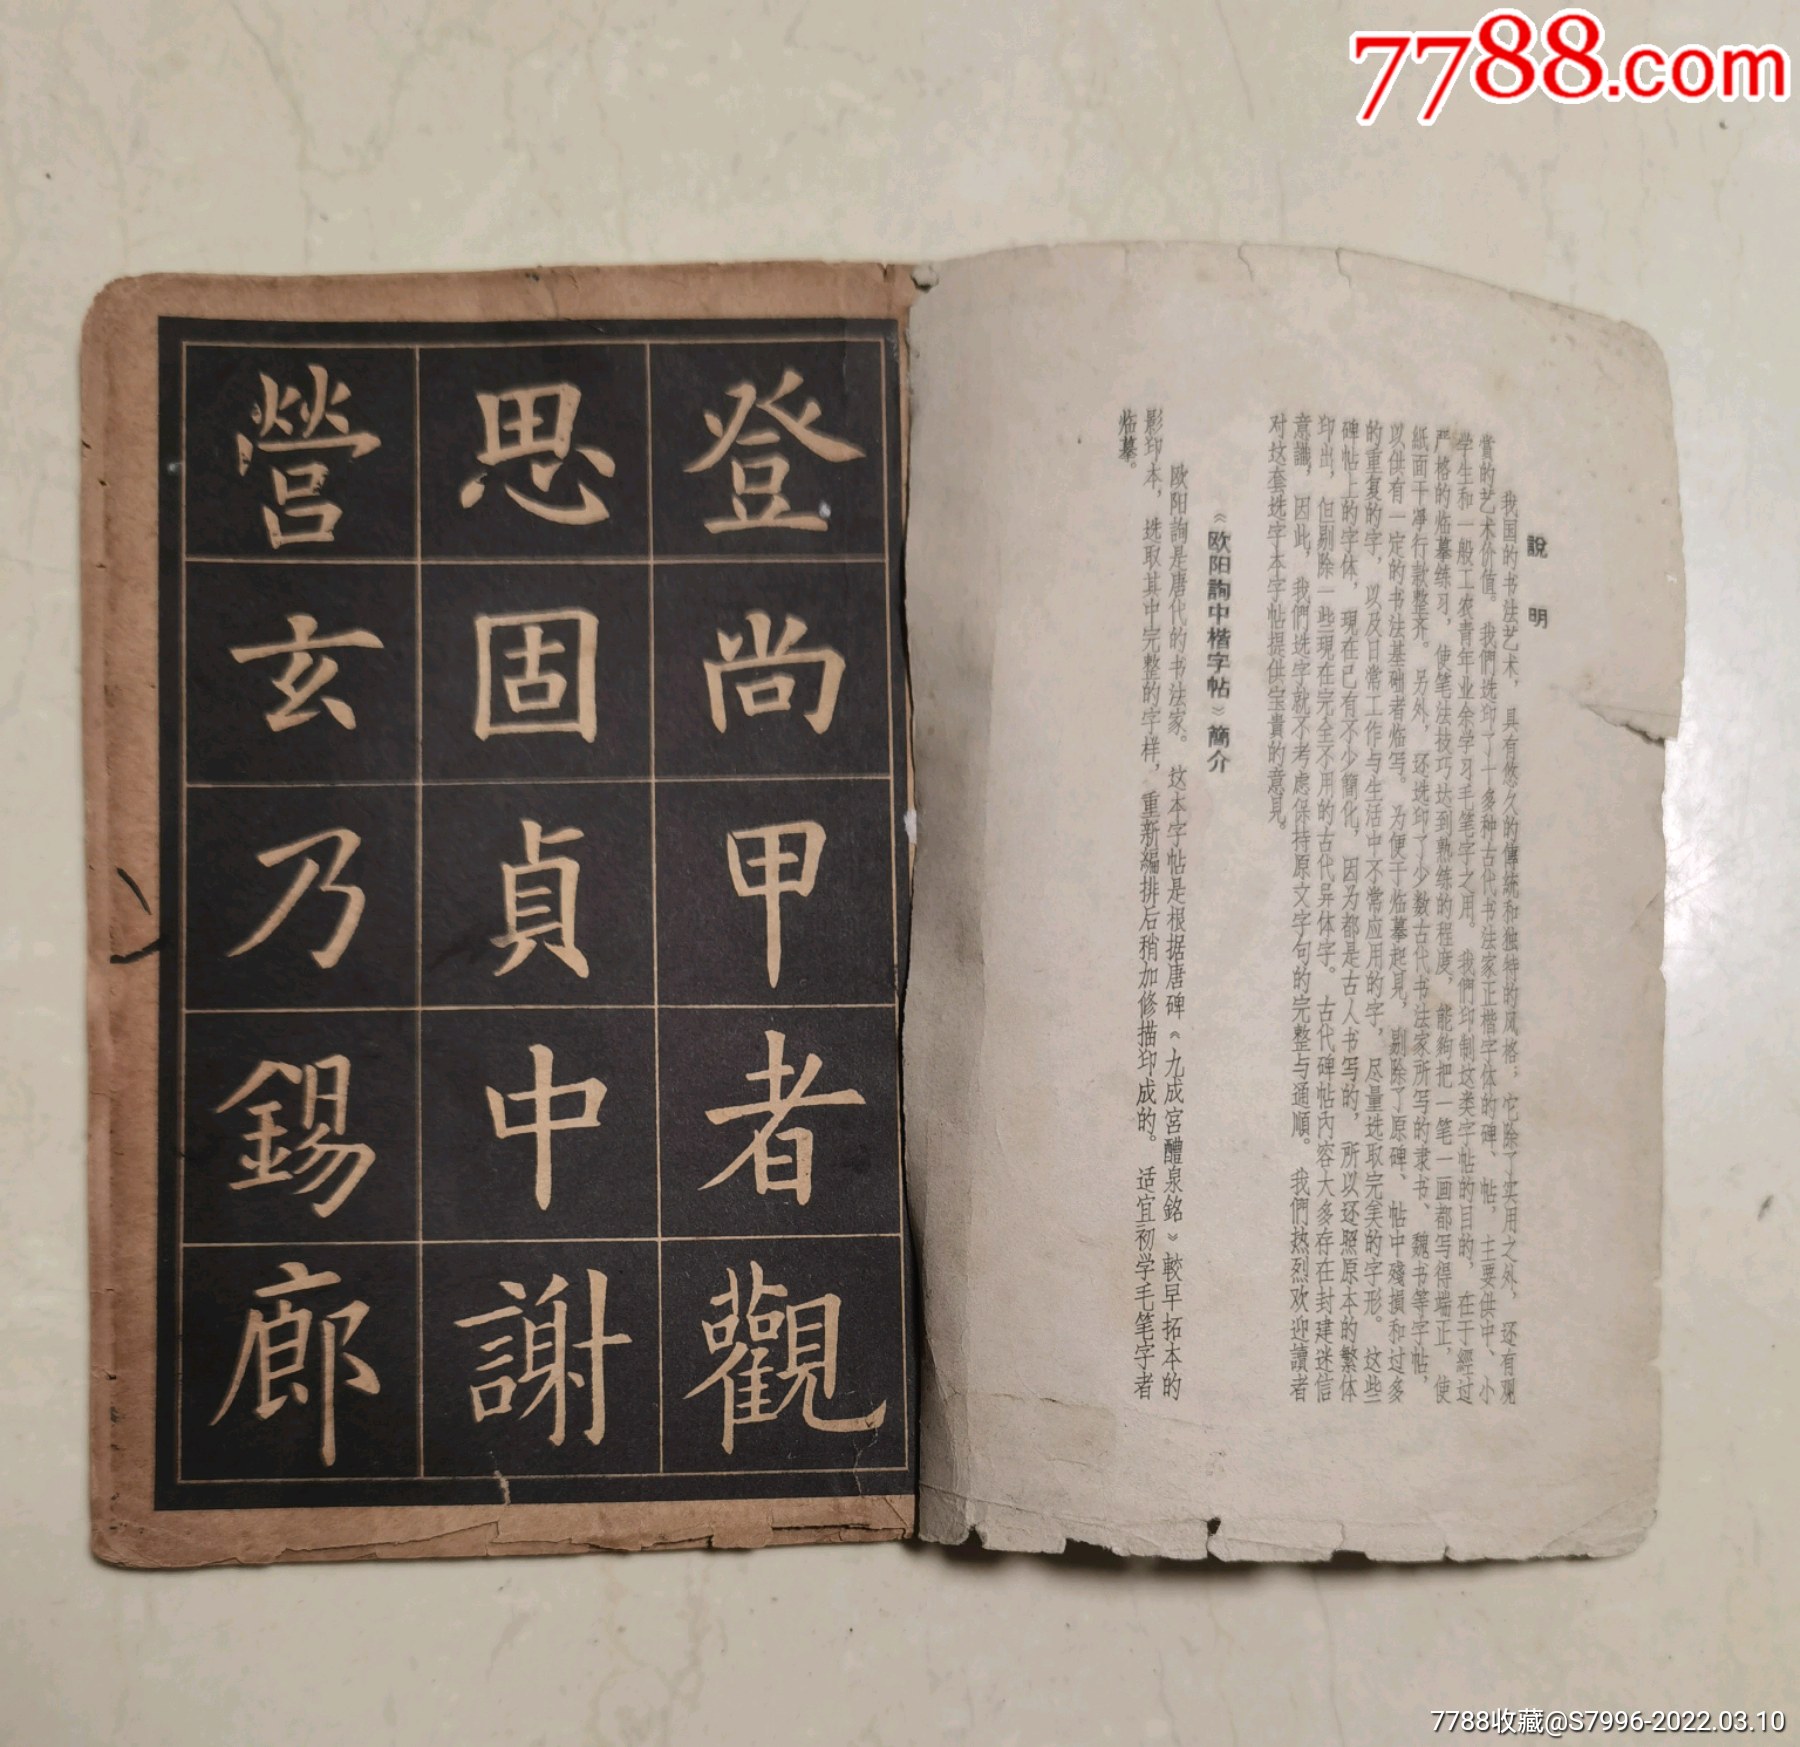 7788.com
說 明
我国的书法艺术，具有悠久的傳統和独特的风格；它除了实用之外，还有观
赏的艺术价值。我們选印了十多种古代书法家正楷字体的碑、帖，主要供中、小
学生和一般工农青年业余学习毛笔字之用。我們印制这类字帖的目的，在于經过
严格的临摹练习，使笔法技巧达到熟练的程度，能夠把一笔一画都写得端正，使
紙面干凈行款整齐。另外，还选印了少数古代书法家所写的隶书、魏书等字帖，
以供有一定的书法基础者临写。为便于临摹起見，剔除了原碑、帖中殘損和过多
的重复的字，以及日常工作与生活中不常应用的字，尽量选取完美的字形。这些
碑帖上的字体，現在已有不少簡化，因为都是古人书写的，所以还照原本的繁体
印出，但剔除一些現在完全不用的古代异体字。古代碑帖內容大多存在封建迷信
意識，因此，我們选字就不考虑保持原文字句的完整与通順。我們热烈欢迎讀者
对这套选字本字帖提供宝貴的意見。
《欧阳詢中楷字帖》簡介
欧阳詢是唐代的书法家。这本字帖是根据唐碑《九成宮醴泉銘》較早拓本的
影印本，选取其中完整的字样，重新編排后稍加修描印成的。适宜初学毛笔字者
临摹。
登尚甲者觀
思固貞中謝
營玄乃錫廊
7788收藏@S7996-2022.03.10